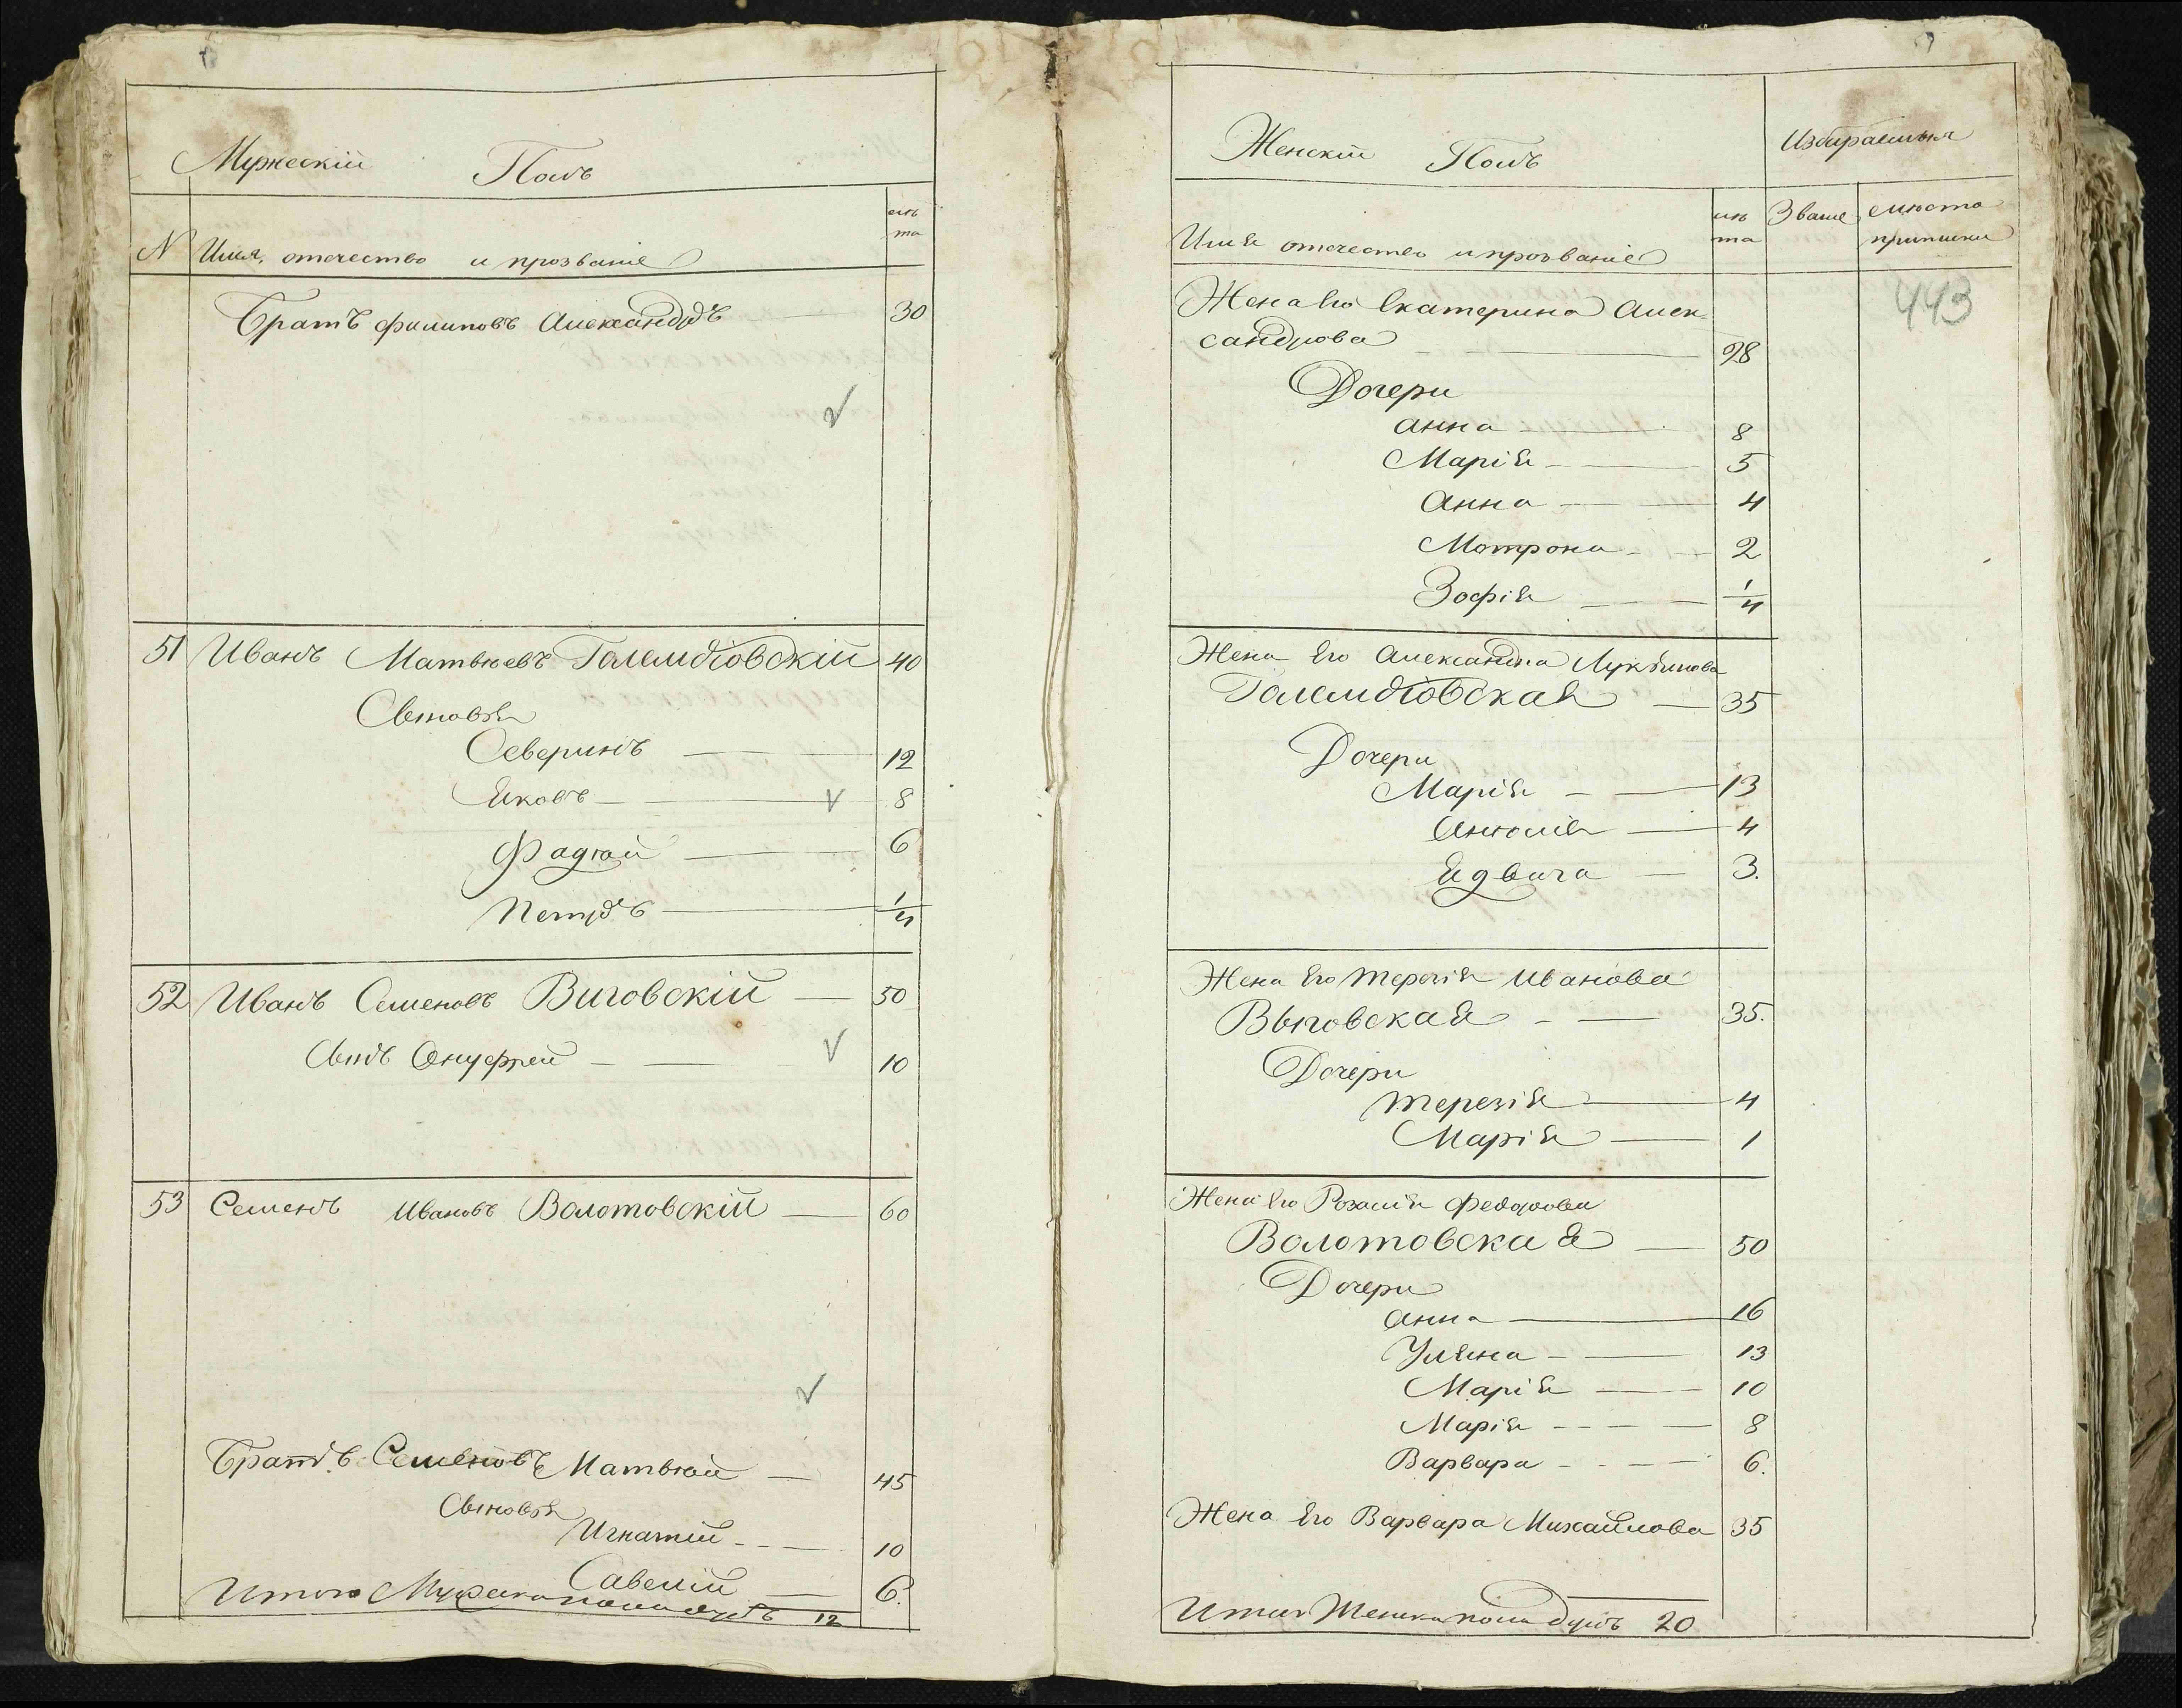 Мужескій Полъ
лѣ
та
N Имя, отечество и прозваніе
Братъ Филиповъ Александръ 30
51 Иванъ Матвѣевъ 40
Сыновья
Северинъ 12
Яковъ 8
Фадѣй 6
Петръ 1/4
52 Иванъ Семеновъ Виговскій 50
Сынъ Онуфрей 10
53 Семенъ Ивановъ Волотовскій 60
Братъ Семеновъ Матвѣй 45
Сыновья
Игнатій 10
Савелій 6
Итого Мужеска пола душъ 12
Женскій Полъ
Избираемыя
лѣ
та
Имя отечество и прозваніе
Званіе
мѣста
приписки
443
Жена Его Екатерина Алек-
сандрова 28
Дочери
Анна 8
Марія 5
Анна 4
Мотрона 2
Зофія 1/4
Жена Его Александра
35
Дочери
Марія 13
4
Ядвига 3.
Жена Его Терезія Иванова
Выговская 35.
Дочери
Терезія 4
Марія 1
Жена Его Розалія Федорова
Волотовская 50
Дочери
Анна 16
Уляна 13
Марія 10
Марія 8
Варвара 6.
Жена Его Варвара Михайлова 35
Итого Женска пола душъ 20